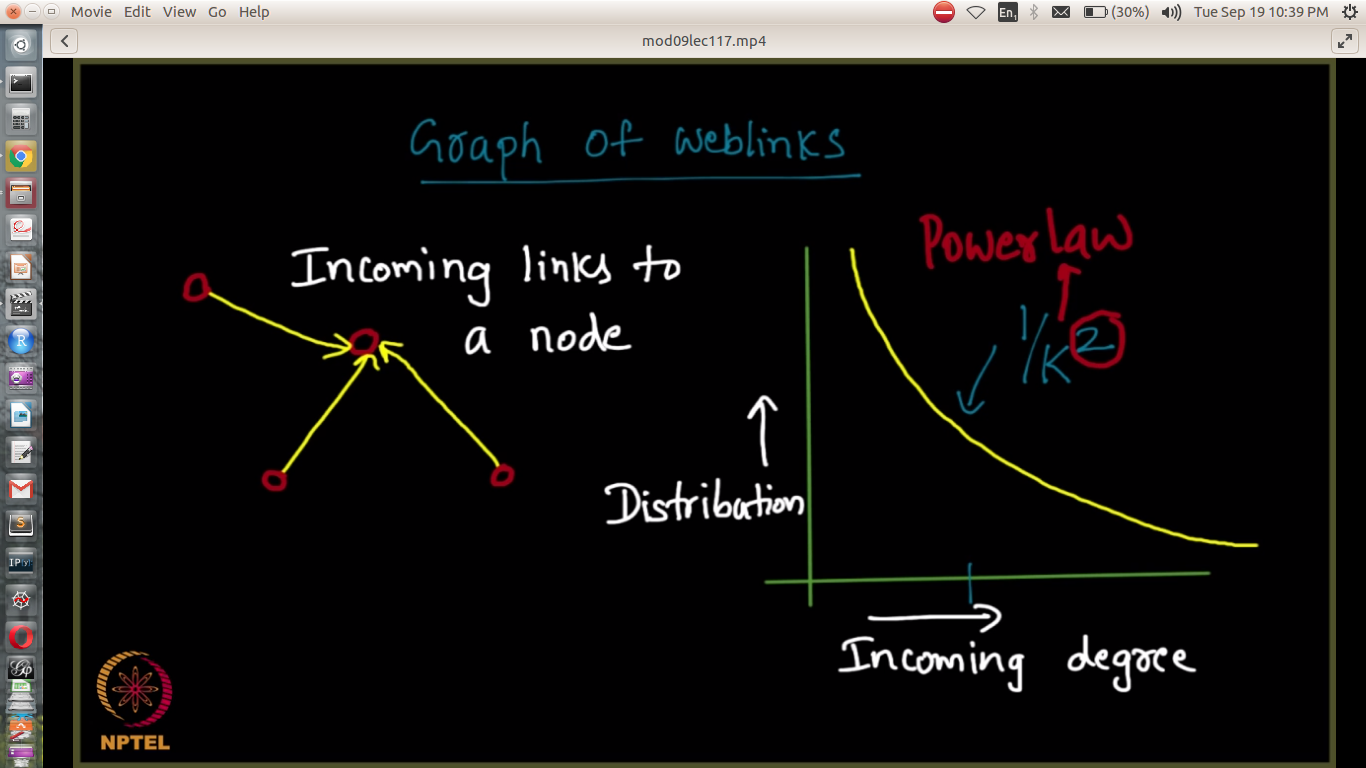 Movie Edit View Go Help
En1
(30%)
Tue Sep 19 10:39 PM
mod09lec117.mp4
Graph of weblinks
Incoming links to
a node
Power law
1/K2
Distribution
Incoming degree
NPTEL
IP[y]: